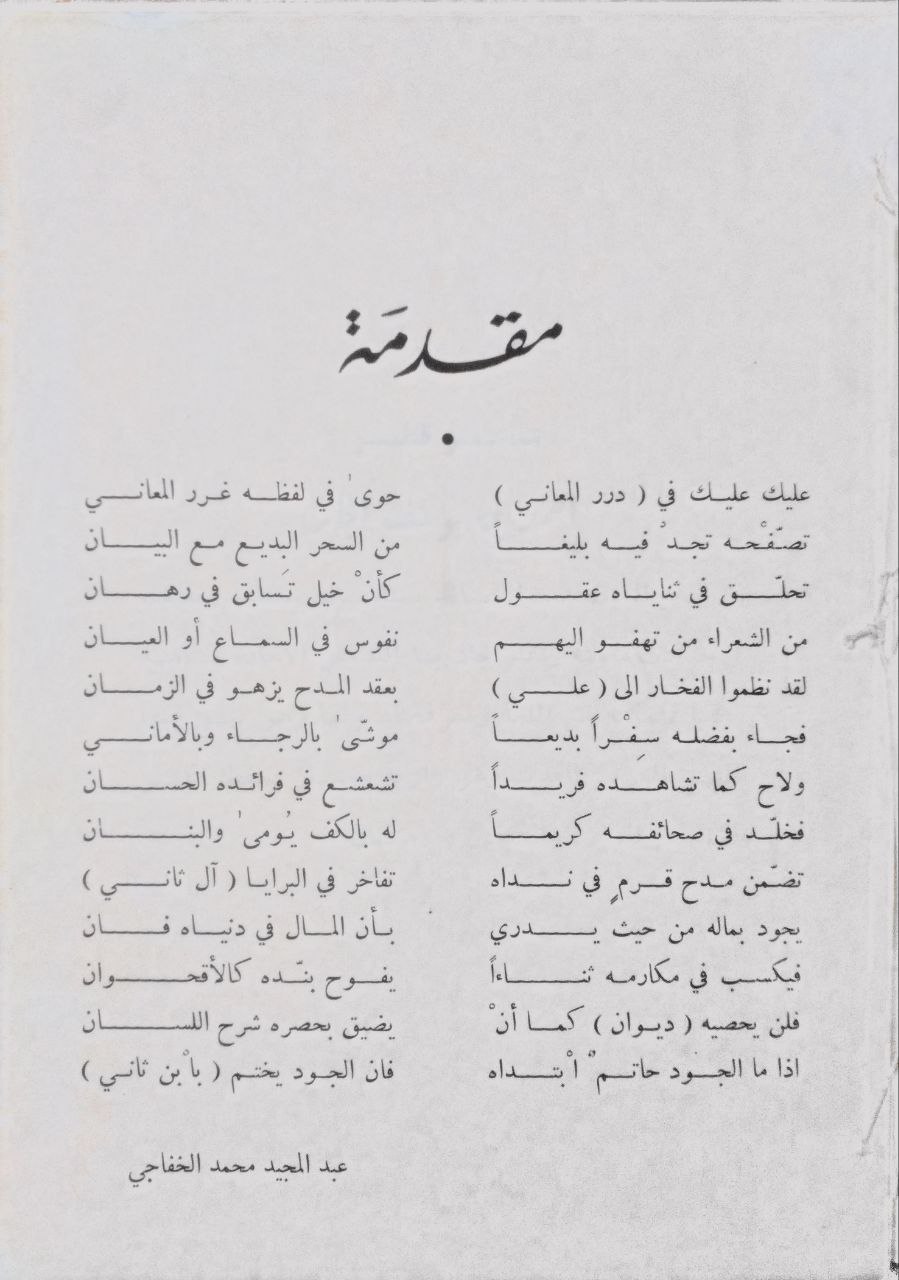 مقدمَة
•
عليك عليك في ( درر المعاني ) حوىٰ في لفظه غرر المعاني
تصفّحْه تجدْ فيه بليغاً من السحر البديع مع البيان
تحلّق في ثناياه عقول كأنْ خيل تَسابق في رهان
من الشعراء من تهفو اليهم نفوس في السماع أو العيان
لقد نظموا الفخار الى ( علي ) بعقد المدح يزهو في الزمان
فجاء بفضله سِفْراً بديعاً موشّىٰ بالرجاء وبالأماني
ولاح كما تشاهده فريداً تشعشع في فرائده الحسان
فخلّد في صحائفه كريماً له بالكف يُومىٰ والبنان
تضمّن مدح قرمٍ في نداه تفاخر في البرايا ( آل ثاني )
يجود بماله من حيث يدري بأن المال في دنياه فان
فيكسب في مكارمه ثناءاً يفوح بندّه كالأقحوان
فلن يحصيه ( ديوان ) كما أنْ يضيق بحصره شرح اللسان
اذا ما الجود حاتمٌ اْبتداه فان الجود يختم ( باْبن ثاني )
عبد المجيد محمد الخفاجي